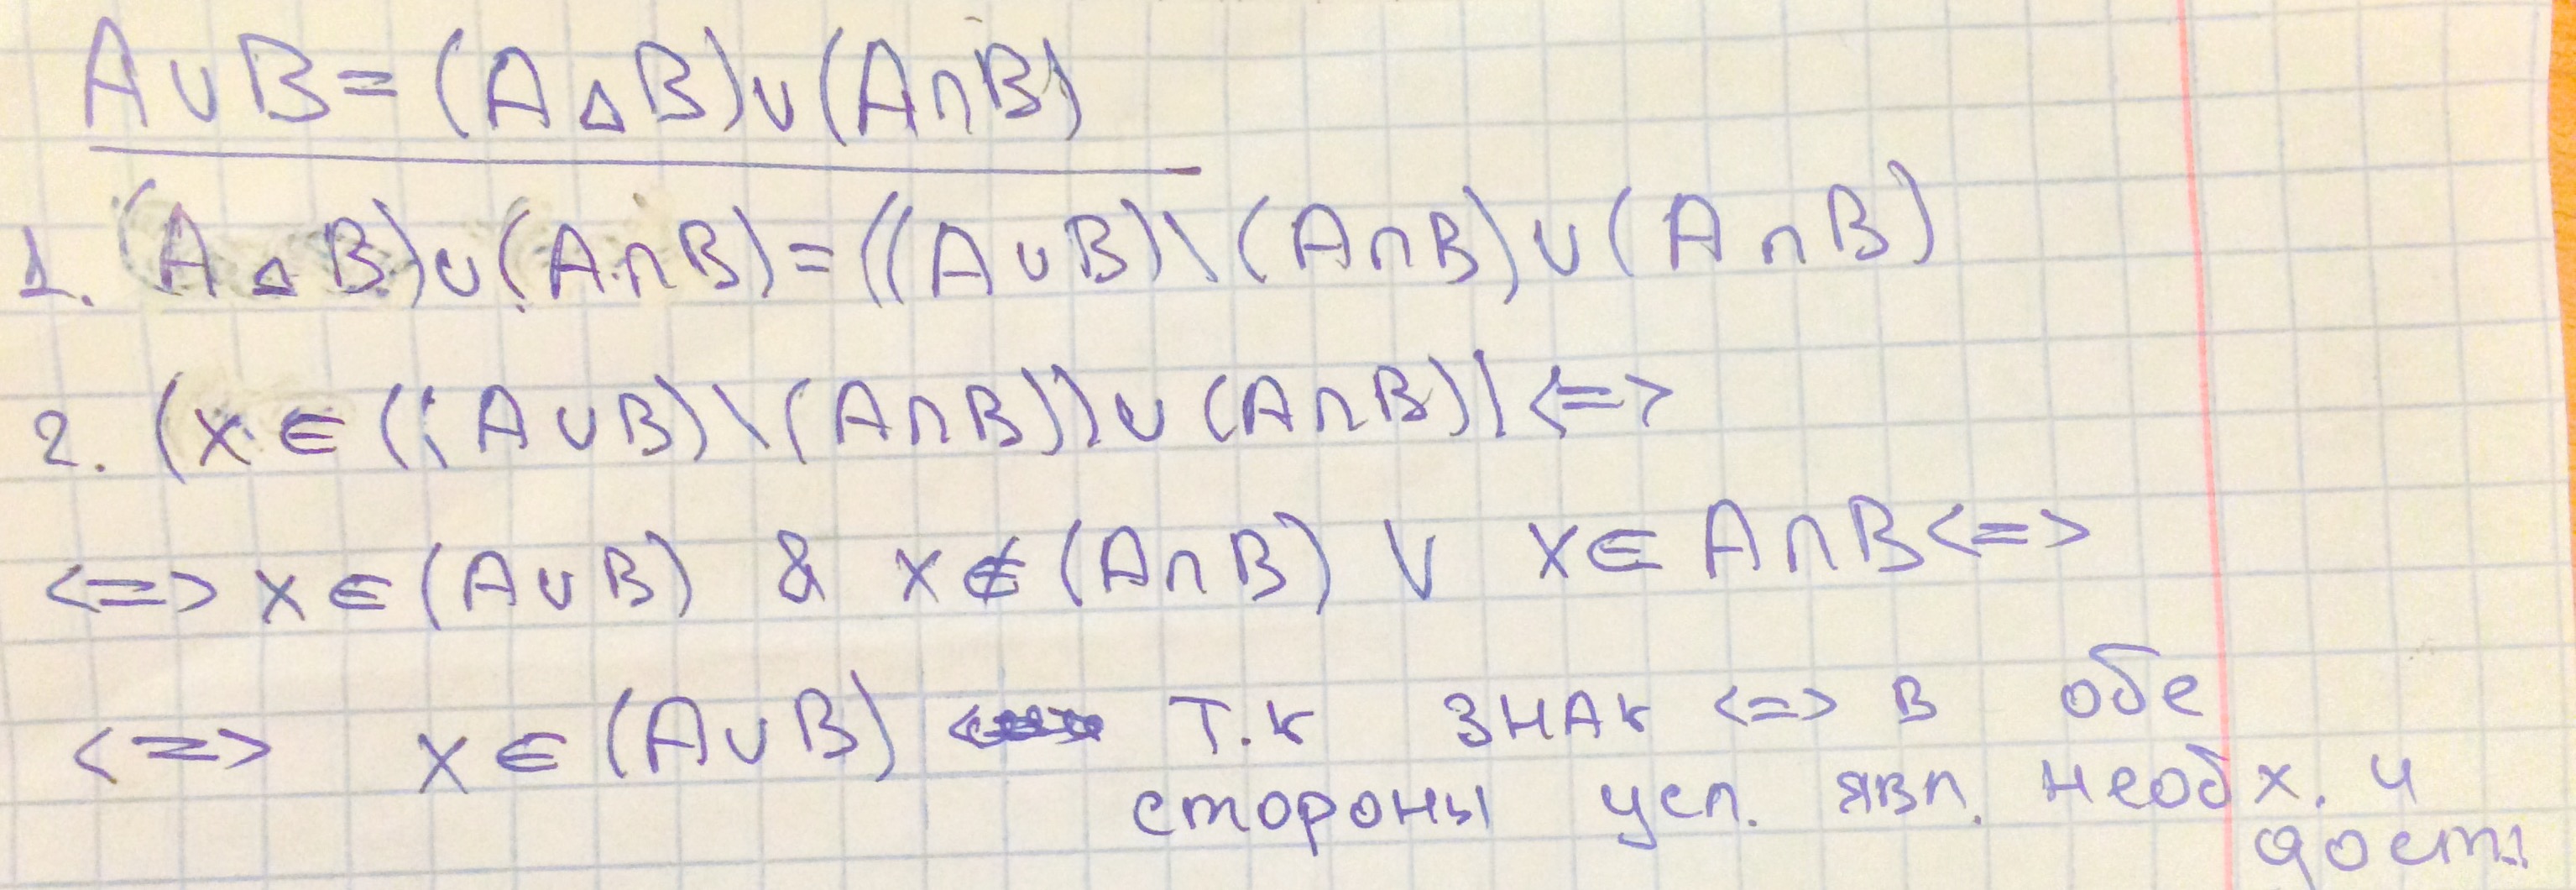 A∪B=(A△B)∪(A∩B)
1. (A△B)∪(A∩B)=((A∪B)\(A∩B)∪(A∩B)
2. (x∈((A∪B)\(A∩B))∪(A∩B)) <=>
<=> x∈(A∪B) & x∉(A∩B) ∨ x∈A∩B <=>
<=> x∈(A∪B) т.к знак <=> в обе
стороны усл. явл. необх. и
дост.